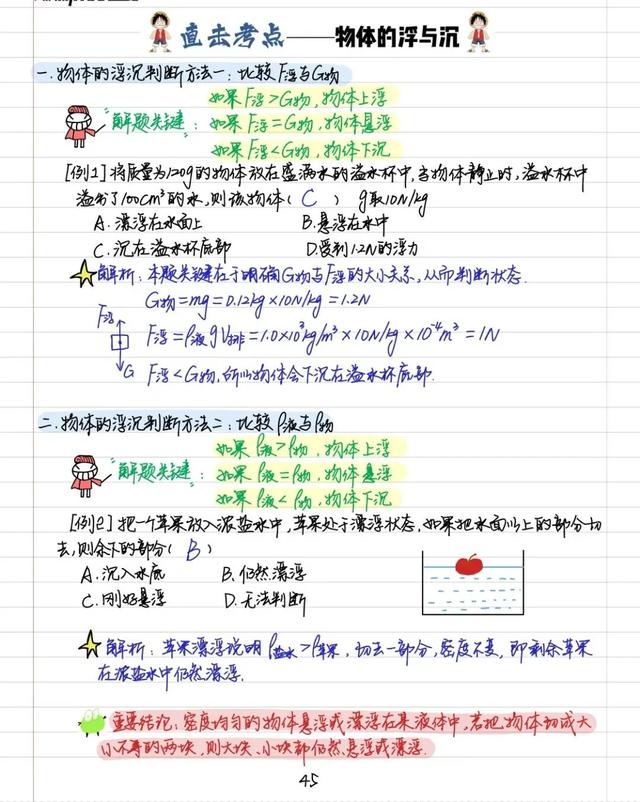 直击考点——物体的浮与沉
一.物体的浮沉判断方法一:比较F浮与G物
如果F浮>G物,物体上浮
解题关键:如果F浮=G物,物体悬浮
如果F浮<G物,物体下沉
[例1]将质量为120g的物体放在盛满水的溢水杯中,当物体静止时,溢水杯中
溢出了100cm³的水,则该物体( C ) g取10N/kg
A.漂浮在水面上 B.悬浮在水中
C.沉在溢水杯底部 D.受到1.2N的浮力
解析:本题关键在于明确G物与F浮的大小关系,从而判断状态.
G物=mg=0.12kg×10N/kg=1.2N
F浮
F浮=ρ液gV排=1.0×10³kg/m³×10N/kg×10⁻⁴m³=1N
G F浮<G物,所以物体会下沉在溢水杯底部.
二.物体的浮沉判断方法二:比较ρ液与ρ物
如果ρ液>ρ物,物体上浮
解题关键:如果ρ液=ρ物,物体悬浮
如果ρ液<ρ物,物体下沉
[例2]把一个苹果放入浓盐水中,苹果处于漂浮状态,如果把水面以上的部分切
去,则余下的部分( B )
A.沉入水底 B.仍然漂浮
C.刚好悬浮 D.无法判断
解析:苹果漂浮说明ρ盐水>ρ苹果,切去一部分,密度不变,即剩余苹果
在浓盐水中仍然漂浮.
重要结论:密度均匀的物体悬浮或漂浮在某液体中,若把物体切成大
小不等的两块,则大块、小块都仍然悬浮或漂浮.
45